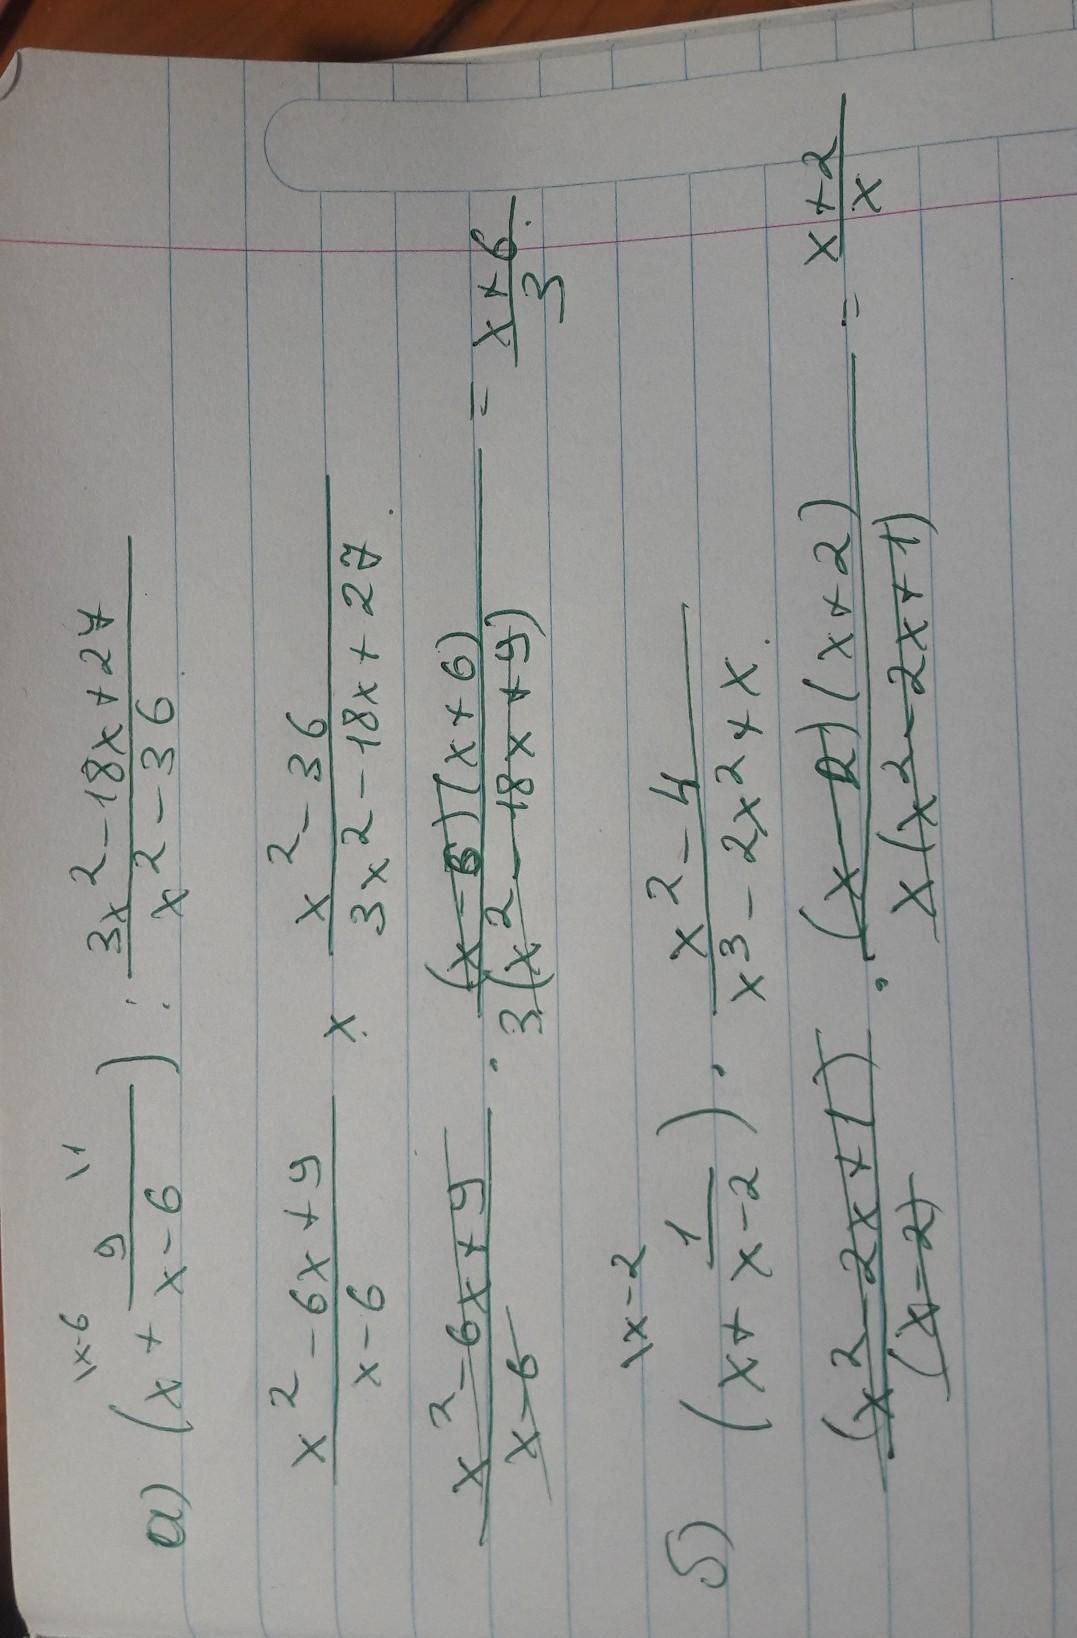 \x-6 \1
а) (x + 9/(x-6)) : (3x² - 18x + 27)/(x² - 36)
(x² - 6x + 9)/(x - 6) x (x² - 36)/(3x² - 18x + 27).
(x² - 6x + 9)/(x - 6) · (x - 6)(x + 6)/3(x² - 18x + 9) = (x + 6)/3.
\x-2
б) (x + 1/(x-2)) · (x² - 4)/(x³ - 2x² + x).
(x² - 2x + 1)/(x - 2) · (x - 2)(x + 2)/x(x² - 2x + 1) = (x + 2)/x